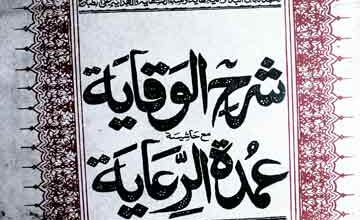 شرح الوقاية
مع حاشية
عمدة الرعاية